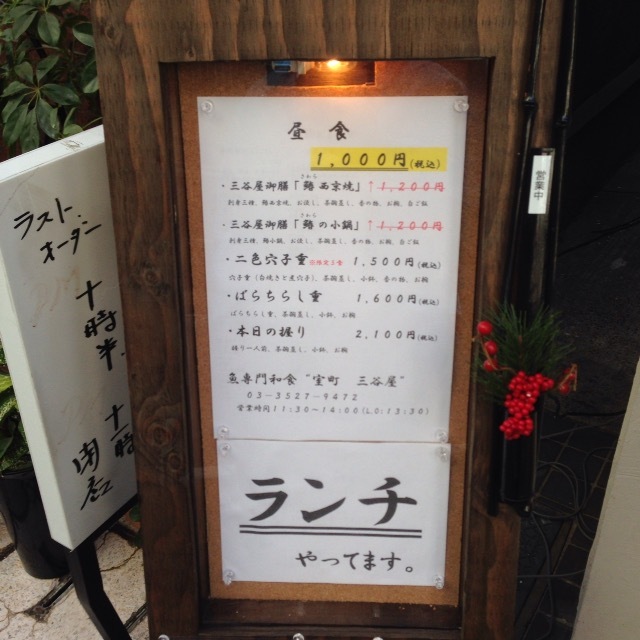 昼食
1,000円(税込)
・三谷屋御膳「鰆西京焼」↑1,200円
さわら
刺身三種、鰆西京焼、お浸し、茶碗蒸し、香の物、お椀、白ご飯
・三谷屋御膳「鰆の小鍋」↑1,200円
さわら
刺身三種、鰆小鍋、お浸し、茶碗蒸し、香の物、お椀、白ご飯
・二色穴子重 1,500円(税込)
穴子重(白焼きと煮穴子)、茶碗蒸し、小鉢、香の物、お椀
・ばらちらし重 1,600円(税込)
ばらちらし重、茶碗蒸し、小鉢、お椀
・本日の握り 2,100円(税込)
握り一人前、茶碗蒸し、小鉢、お椀
魚専門和食“室町 三谷屋”
03-3527-9472
営業時間11:30~14:00(LO:13:30)
ランチ
やってます。
ラスト、
オーダー
十時半、
十一時
閉店
営業中